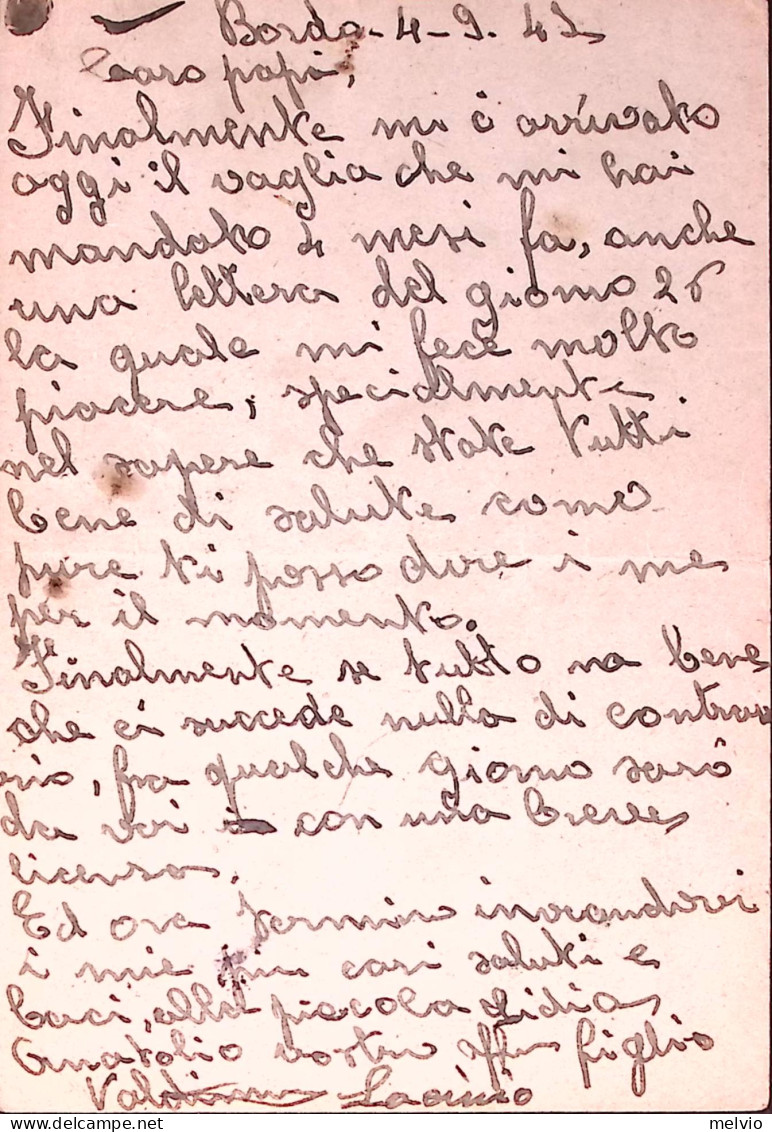 Bordo-4-9-42
Caro papi,
Finalmente mi é arrivato
oggi il vaglia che mi hai
mandato 4 mesi fa, anche
una lettera del giorno 26
la quale mi fece molto
piacere, specialmente
nel sapere che state tutti
bene di salute come
pure ti posso dire i me
per il momento.
Finalmente se tutto va bene
che ci succede nulla di contra
rio, fra qualche giorno saró
da voi con una breve
licenza.
Ed ora termino inviandovi
i mie piu cari saluti e
baci, alla piccola Lidia
Anatolio vostro aff figlio
melvio